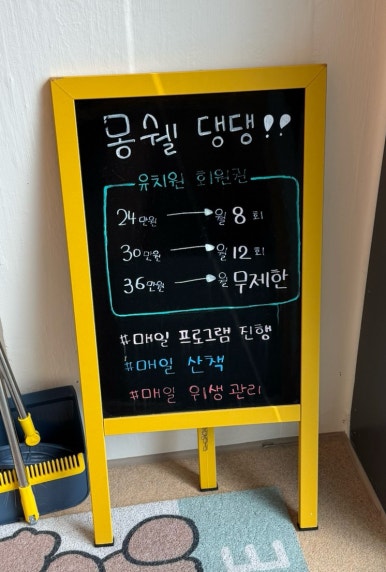 몽쉘 댕댕!!
유치원 회원권
24만원 → 월 8회
30만원 → 월 12회
36만원 → 월 무제한
#매일 프로그램 진행
#매일 산책
#매일 위생관리